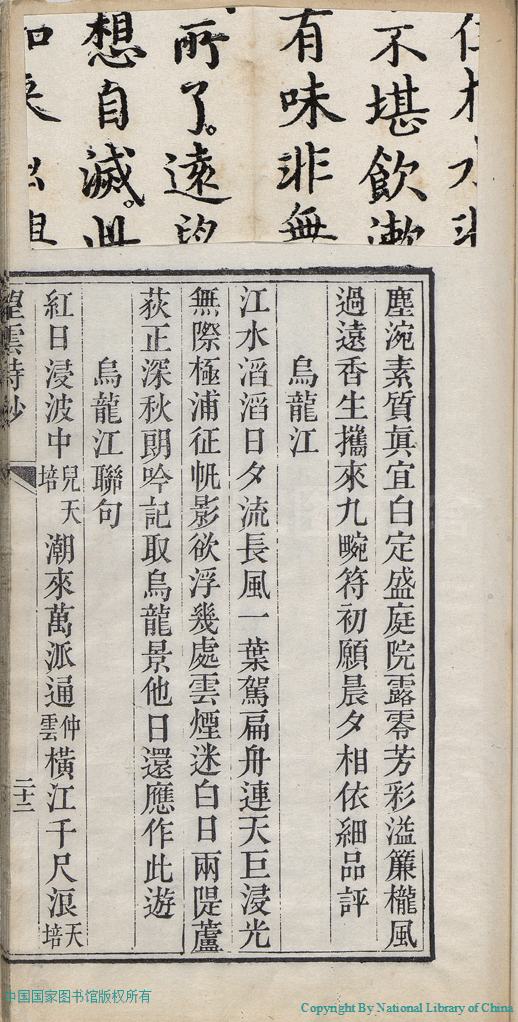 不堪飲漱
有味非無
所了遠
想自滅此
塵涴素質眞宜白定盛庭院露零芳彩溢簾櫳風
過遠香生攜來九畹符初願晨夕相依細品評
烏龍江
江水滔滔日夕流長風一葉駕扁舟連天巨浸光
無際極浦征帆影欲浮幾處雲煙迷白日兩隄蘆
荻正深秋朗吟記取烏龍景他日還應作此遊
烏龍江聯句
紅日浸波中兒天培潮來萬派通仲雲橫江千尺浪天培
望雲詩鈔
二十二
中国国家图书馆版权所有
Copyright By National Library of China